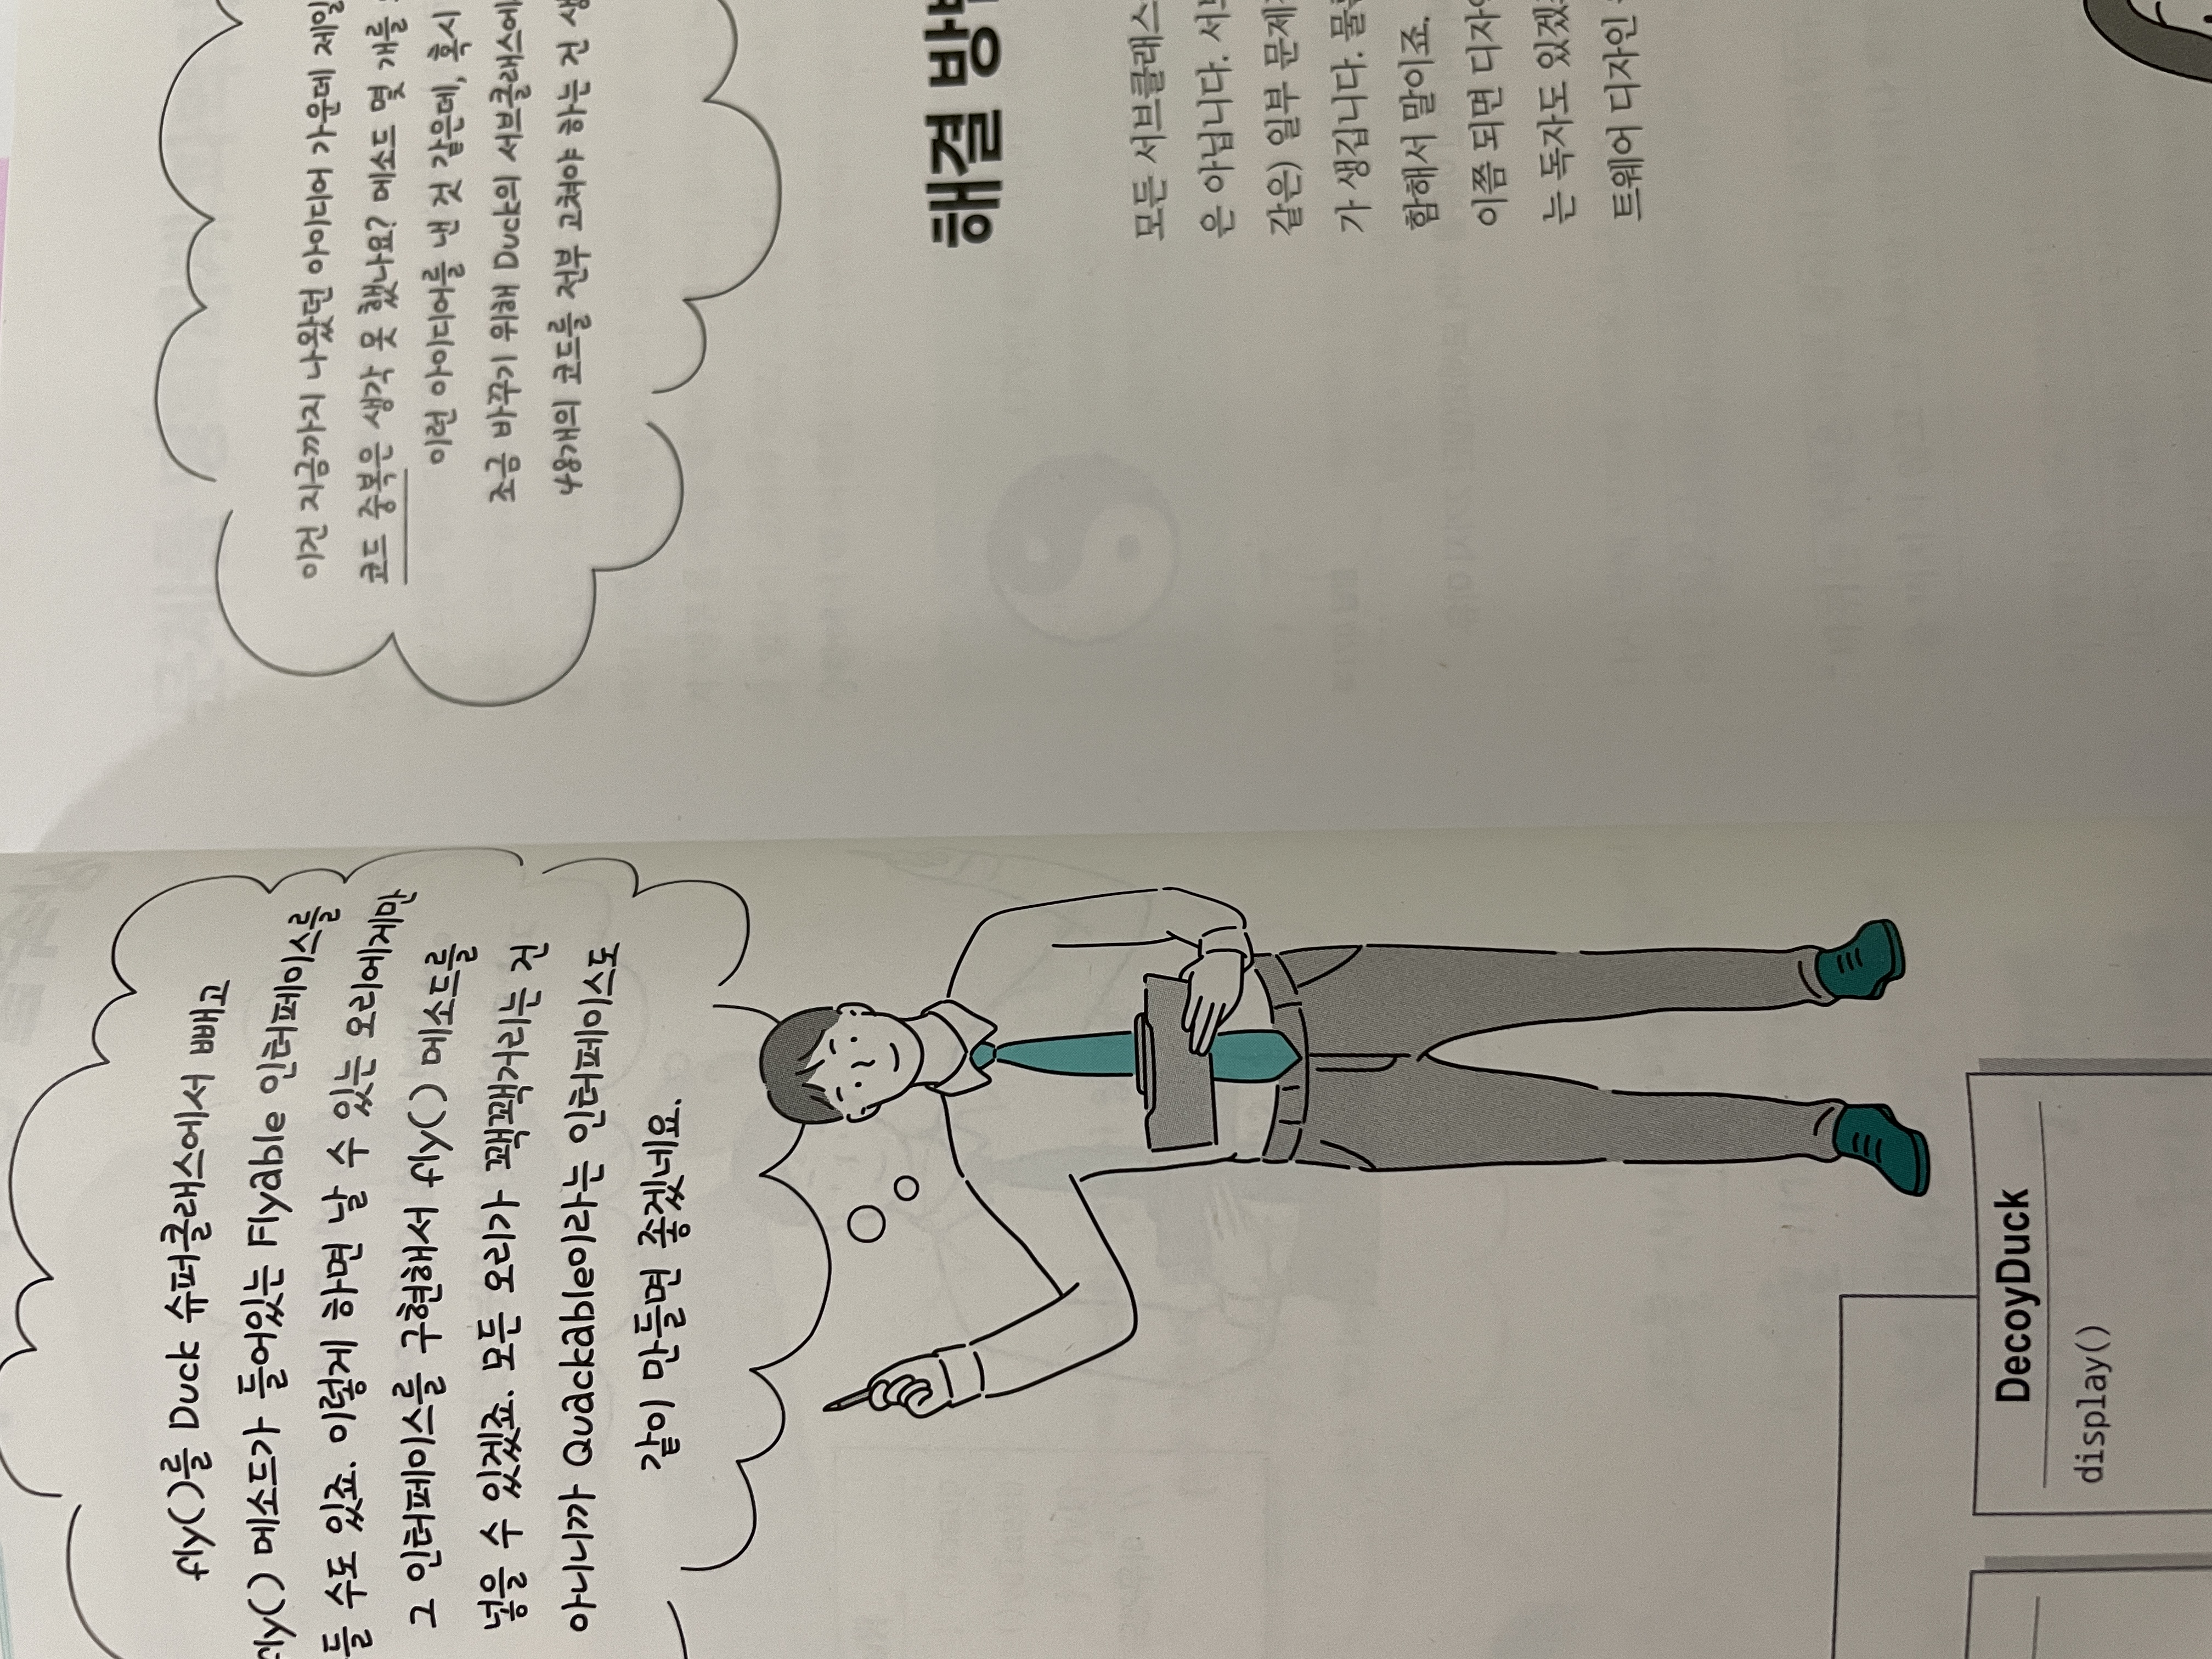 fly()를 Duck 슈퍼클래스에서 빼고
fly() 메소드가 들어있는 Flyable 인터페이스를
들 수도 있죠. 이렇게 하면 날 수 있는 오리에게만
그 인터페이스를 구현해서 fly() 메소드를
넣을 수 있겠죠. 모든 오리가 꽥꽥거리는 건
아니니까 Quackable이라는 인터페이스도
같이 만들면 좋겠네요.
DecoyDuck
display()
이건 지금까지 나왔던 아이디어 가운데 제일
코드 중복은 생각 못 했나요? 메소드 몇 개를
이런 아이디어를 낸 것 같은데, 혹시
조금 바꾸기 위해 Duck의 서브클래스에
48개의 코드를 전부 고쳐야 하는 건
해결
모든 서브클래스
은 아닙니다.
같은) 일부 문제
가 생깁니다.
함해서 말이죠.
이쯤 되면
는 독자도
트웨어 디자인